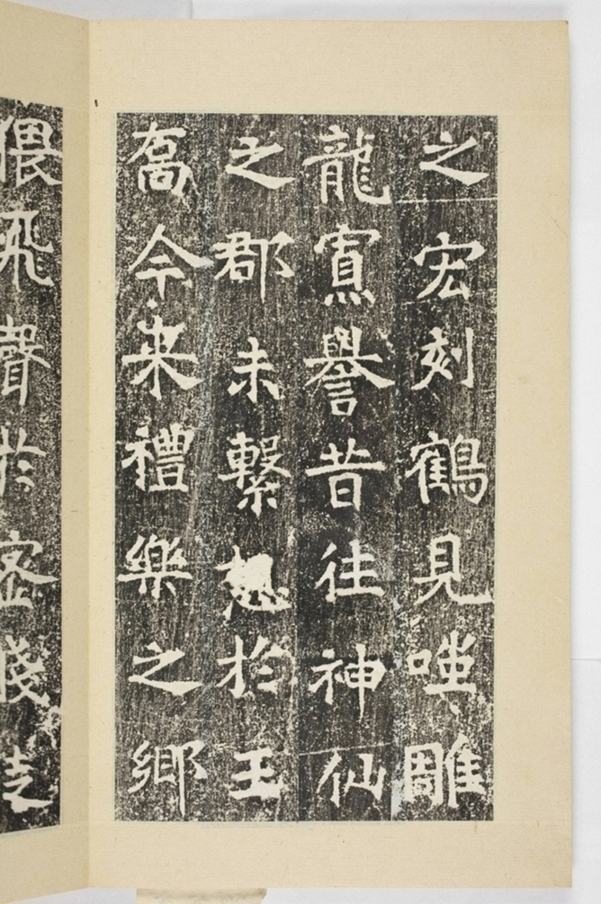 之宏刻鶴見嗤雕
龍寡譽昔往神仙
之郡未繫於王
喬今来禮樂之鄉
偎飛聲於密後